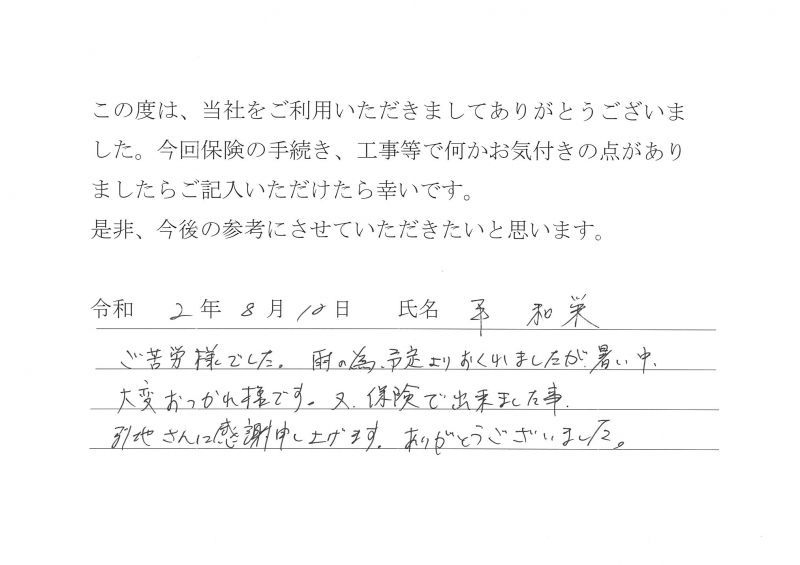 この度は、当社をご利用いただきましてありがとうございま
した。今回保険の手続き、工事等で何かお気付きの点があり
ましたらご記入いただけたら幸いです。
是非、今後の参考にさせていただきたいと思います。
令和 2年 8月 10日 氏名 平 和栄
ご苦労様でした。雨の為、予定よりおくれましたが、暑い中、
大変おつかれ様です。又、保険で出来ました事、
引地さんに感謝申し上げます。ありがとうございました。